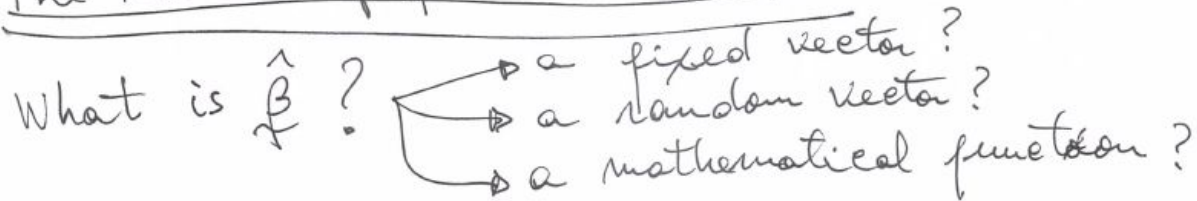 What is β̂ ? a fixed vector ?
a random vector ?
a mathematical function ?